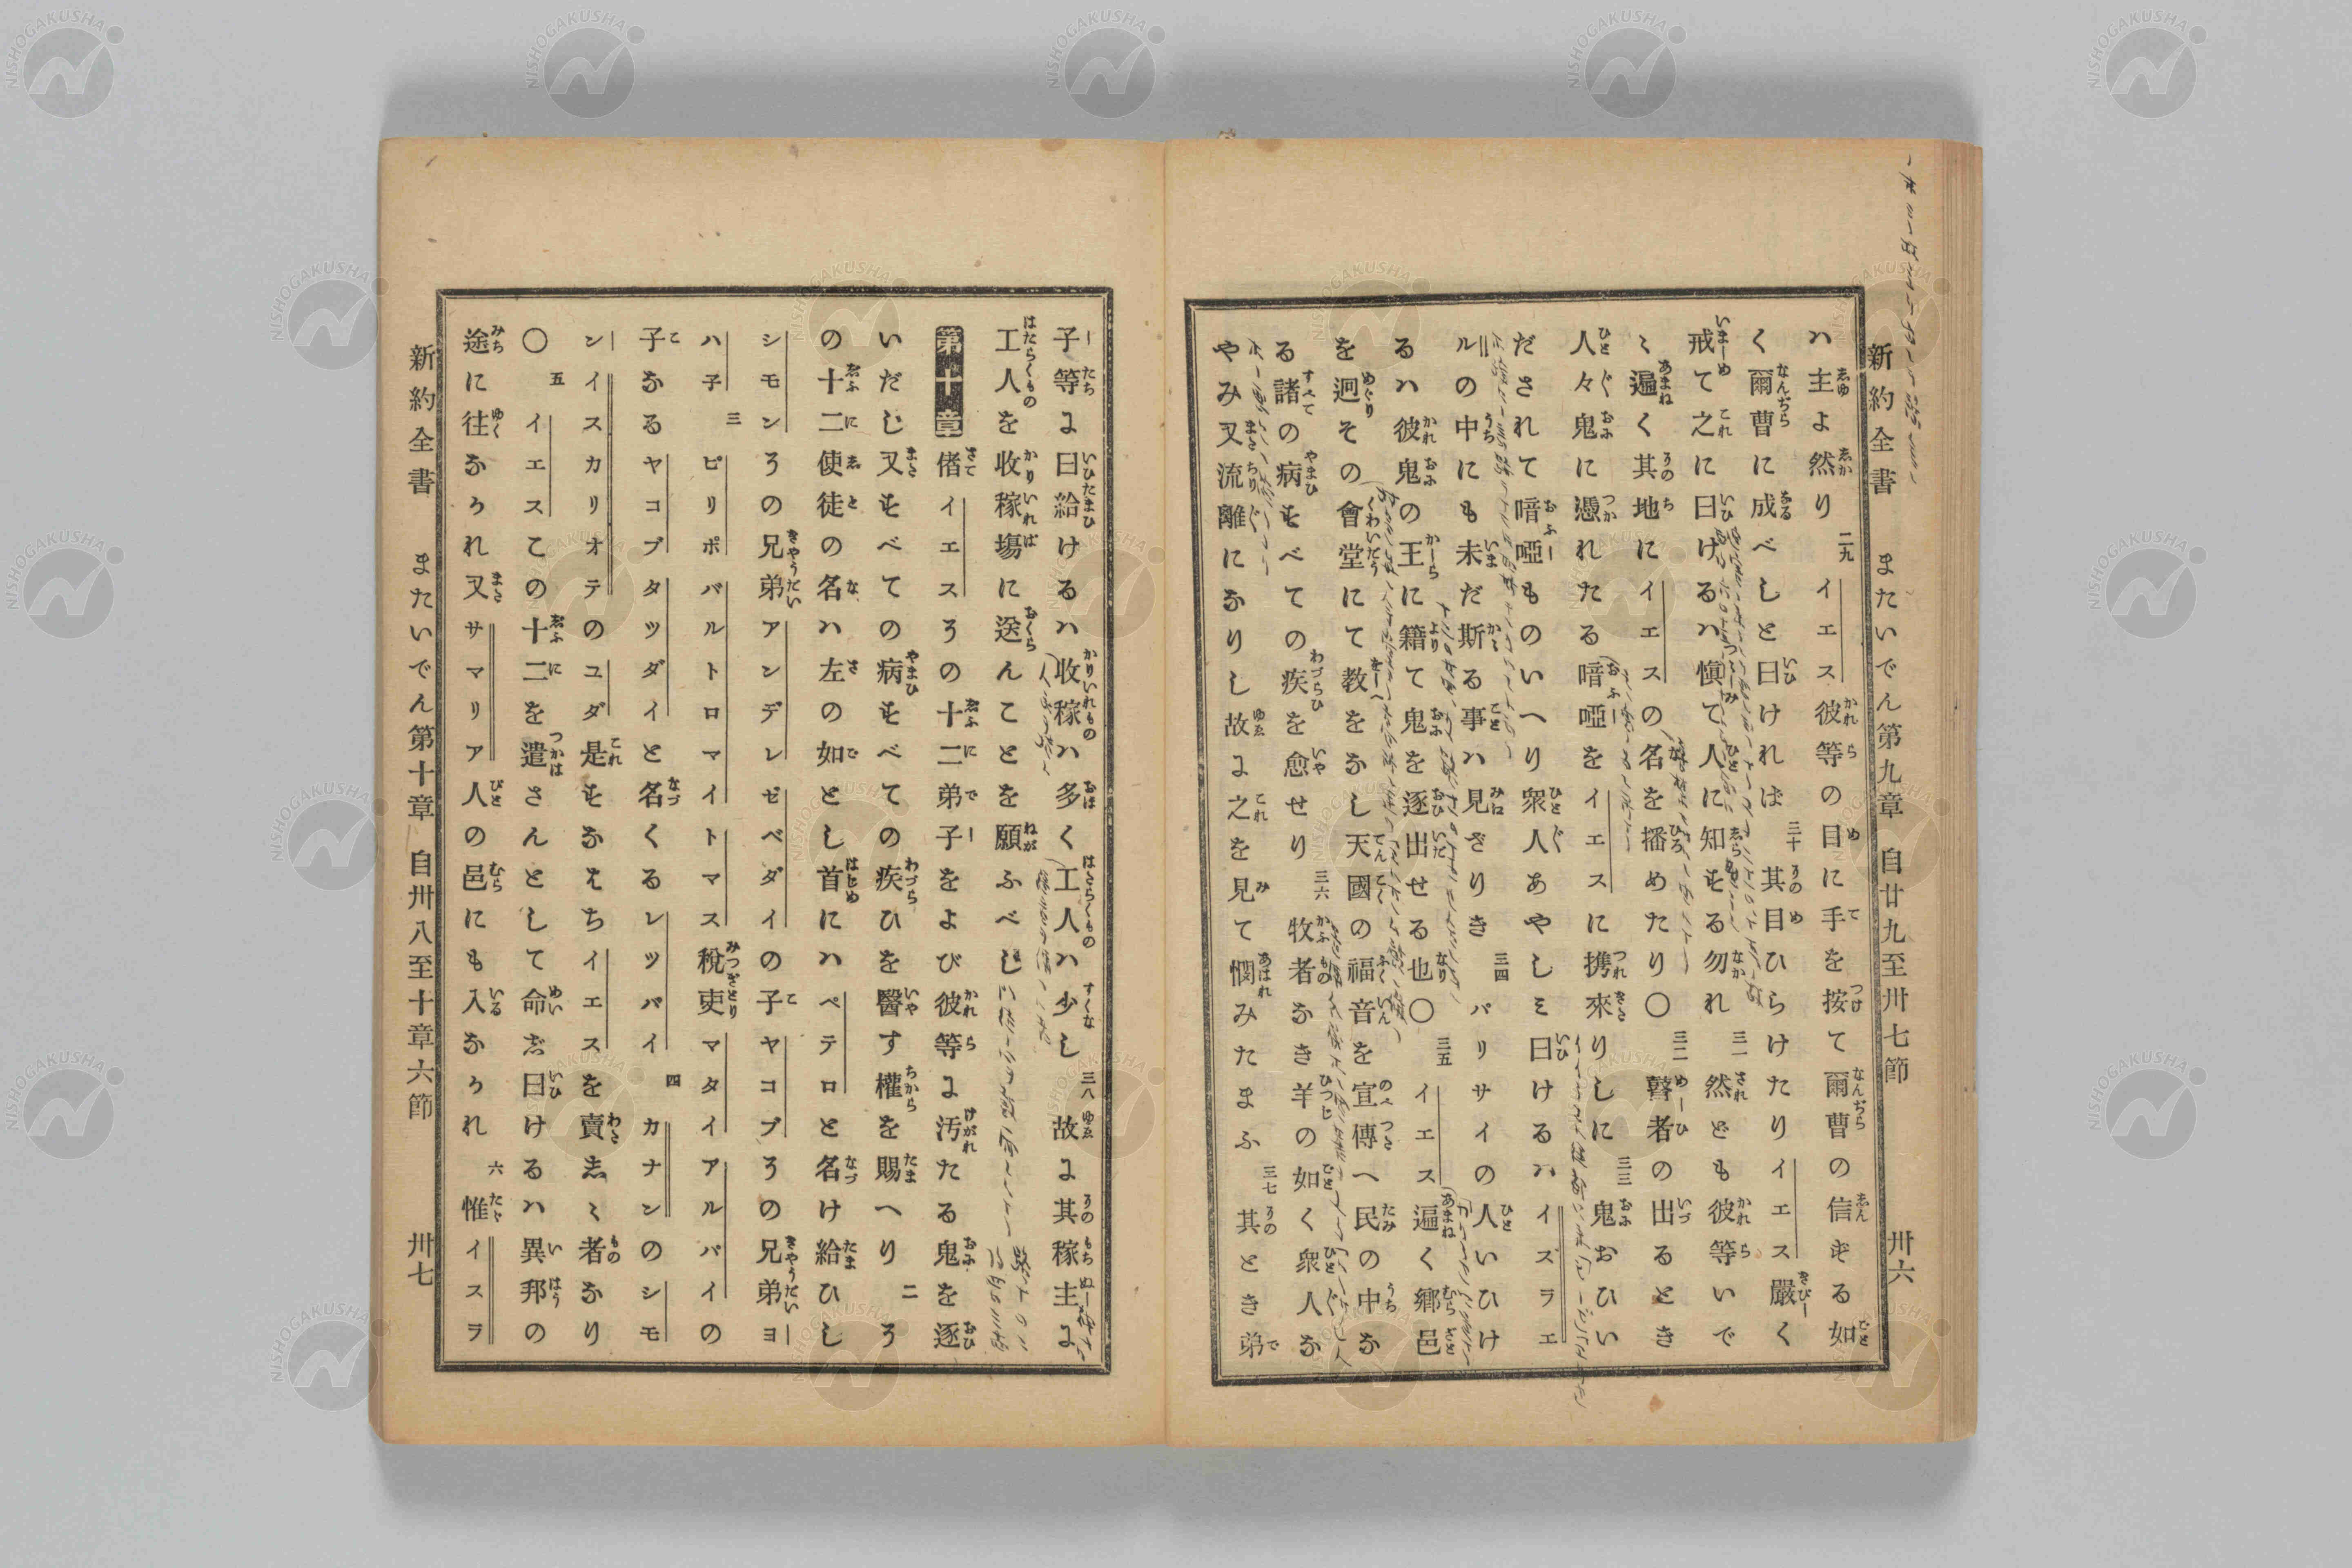 新約全書 またいでん第九章 自廿九至卅七節 卅六
ハ主よ然り 二九 イエス彼等の目に手を按て爾曹の信ずる如
く爾曹に成べしと曰ければ 三十 其目ひらけたりイエス嚴く
戒て之に曰けるハ愼て人に知する勿れ 三一 然ども彼等いで
ミ遍く其地にイエスの名を播めたり〇 三二 瞽者の出るとき
人々鬼に憑れたる喑啞をイエスに携來りしに 三三 鬼おひい
だされて喑啞ものいへり衆人あやしミ曰けるハイズラエ
ルの中にも未だ斯る事ハ見ざりき 三四 パリサイの人いひけ
るハ彼鬼の王に籍て鬼を逐出せる也〇 三五 イエス遍く郷邑
を迴その會堂にて教をなし天國の福音を宣傳へ民の中な
る諸の病すべての疾を愈せり 三六 牧者なき羊の如く衆人な
やみ又流離になりし故に之を見て憫みたまふ 三七 其とき弟
子等に曰給けるハ收稼ハ多く工人ハ少し 三八 故に其稼主に
工人を收稼塲に送んことを願ふべし
第十章 偖イエスその十二弟子をよび彼等に汚たる鬼を逐
いだし又すべての病すべての疾ひを醫す權を賜へり 二 そ
の十二使徒の名ハ左の如とし首にハペテロと名け給ひし
シモンその兄弟アンデレゼベダイの子ヤコブその兄弟ヨ
ハ子 三 ピリポバルトロマイトマス稅吏マタイアルパイの
子なるヤコブタツダイと名くるレツバイ 四 カナンのシモ
ンイスカリオテのユダ是すなはちイエスを賣しゝ者なり
〇 五 イエスこの十二を遣さんとして命じ曰けるハ異邦の
途に往なかれ又サマリア人の邑にも入なかれ 六 惟イスラ
新約全書 またいでん第十章 自卅八至十章六節 卅七
NISHOGAKUSHA